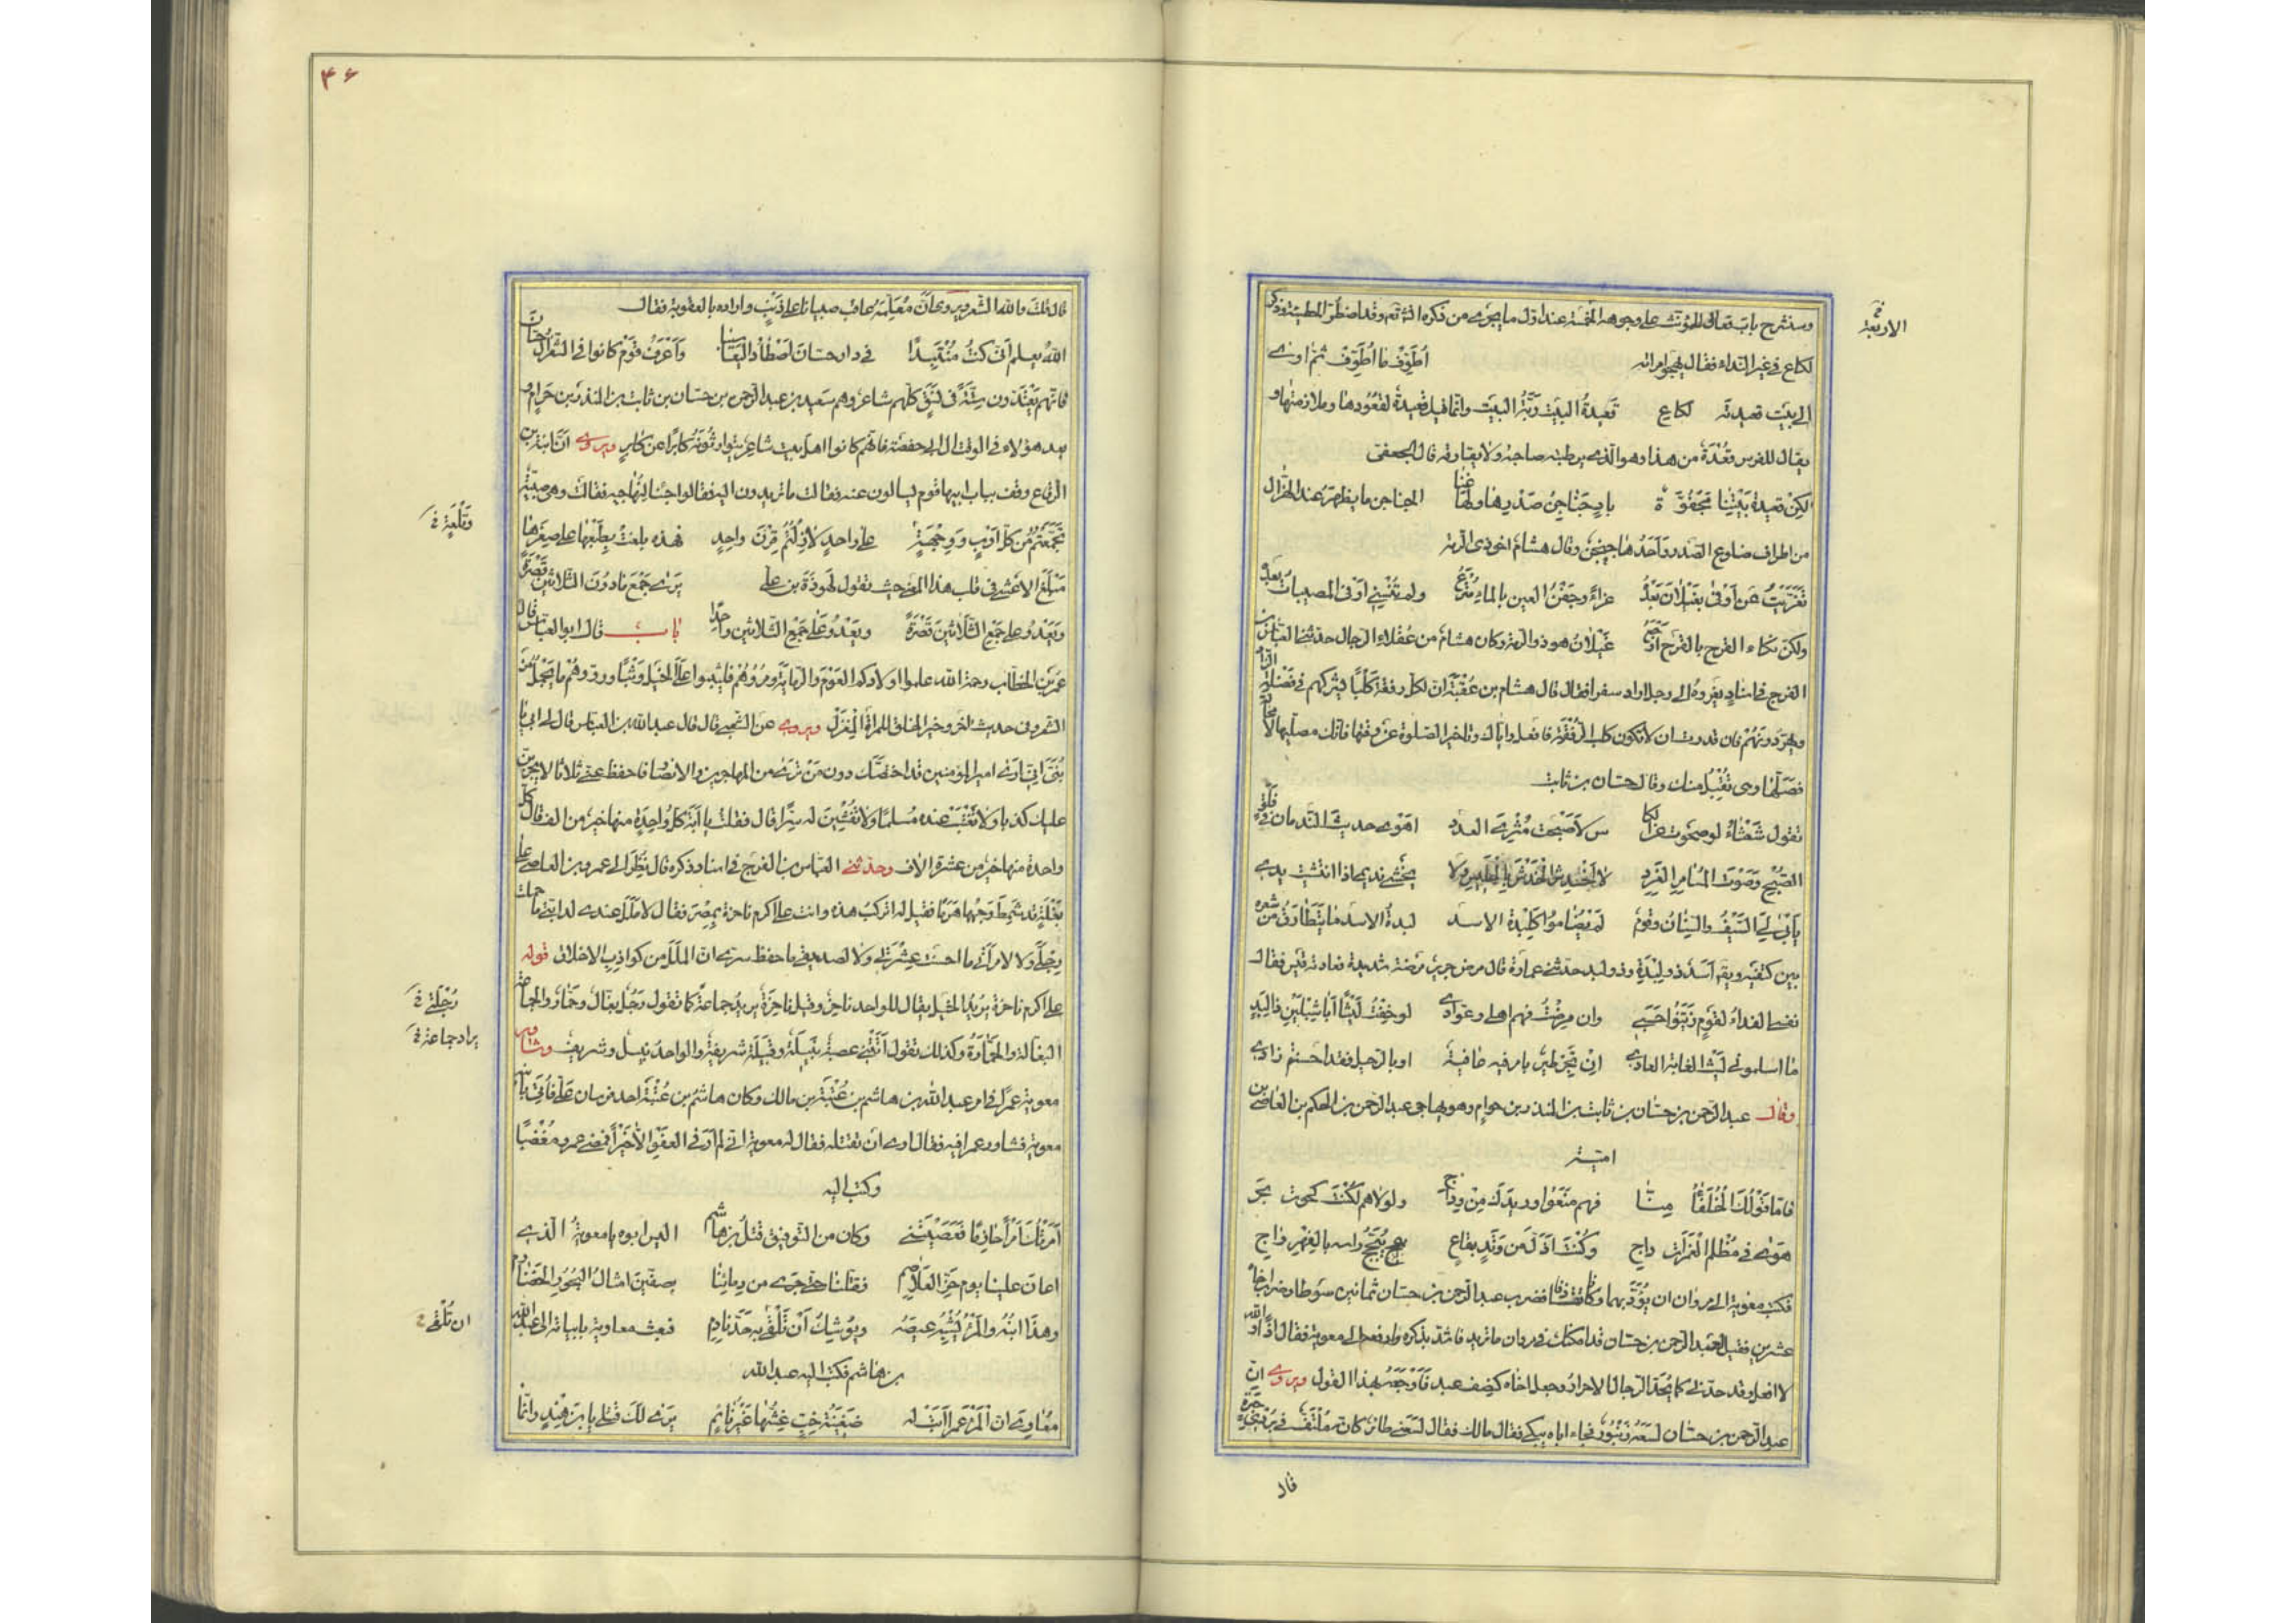 وسنشرح باب فعال للمؤنث على وجوهه الخمسة عند اول ما يجرى من ذكره ان شاء الله تعالى وقد اضطر الحطيئة فذكر
فى الاربعة
لكاع فى غير النداء فقال يهجو امراته اُطَوِّف ما اُطَوِّف ثم اوى
الى بيت قعيدته لكاع قعيدةُ البيت رَبَّةُ البيت وانما قيل قعيدة لقعودها وملازمتها و
يقال للفرس قُعْدَة من هذا وهو الذى يرتبطه صاحبه ولا يفارقه قال الجعفى
لكن قعيدة بيتنا مجفوّة باد جناجن صدرها ولها غنا الجناجن ما يظهر عند الهزال
من اطراف ضلوع الصدر واحدها جنجن وقال هشام اخو ذى الرمة
تعزّيت عن اوفى بغيلان بعده عزاءً وجفن العين بالماء مترع ولم تنسنى اوفى المصيبات بعده
ولكن نكاء القرح بالقرح اوجع غيلان هو ذو الرمة وكان هشام من عقلاء الرجال حدثنى العباس بن
الفرج فى اسناد يعزوه الى رجل اراد سفرا فقال قال هشام بن عُقْبَة ان لكل رفقة كلبا يشركهم فى فضلة الزاد
ويهرّ دونهم فان قدرت ان لا تكون كلب الرفقة فافعل واياك وتاخير الصلوة عن وقتها فانك مصليها لا محالة
فصلّها وهى تُقْبَل منك وقال حسان بن ثابت
تقول شعثاءُ لو صحوت عن الكا س لاصبحت مُثْرِىَ العدد اهوى حديث الندمان فى فلق
الصبح وصوت المسامر الغرد لا اخدش الخدش بالجليس ولا يخشى نديمى اذا انتشيت يدى
يأبى لى السيف واللسان وقوم لم يضاموا كلبدة الاسد لبدة الاسد ما يتطارق من شعره
بين كتفيه ويقال اسد ذو لبدة وذو لبد حدثنى عمارة قال مرض جرير مرضة شديدة فعادته قيس فقال
نفسى الفداء لقوم زيّنوا حسبى وان مرضت فهم اهلى وعوّادى لو خفت ليثا ابا شبلين ذا لبد
ما اسلمونى لليث الغابة العادى ان تجر طير بامر فيه عافية او بالرحيل فقد احسنتم زادى
وقال عبد الرحمن بن حسان بن ثابت بن المنذر بن حرام وهو يهاجى عبد الرحمن بن الحكم بن العاصى بن
امية
فاما قولك الخلفاءُ مِنّا فهم منعوا وريدك من وداج ولولاهم لكنت كحوت بحر
هوى فى مظلم الغمرات داج وكنت اذلّ من وتد بقاع يشجّج راسه بالفهر واج
فكتب معوية الى مروان ان يؤدبهما وكانا تقاذفا فضرب عبد الرحمن بن حسان ثمانين سوطا وضرب اخاه
عشرين فقيل لعبد الرحمن بن حسان قد امكنك فى مروان ما تريد فاشد بذكره وارفعه الى معوية فقال اذًا والله
لا افعل وقد حدنى كما يُحَدّ الرجال الاحرار وجعل اخاه كنصف عبد فاوجعه بهذا القول ويروى ان
عبد الرحمن بن حسان لسعه زنبور فجاء اباه يبكى فقال مالك فقال لسعنى طائر كانه ملتفّ فى بردى حبرة
قال
۴۶
قال قلت والله الشعر ويروى ان مُعَلِّمَهُ عاقب صبيانا على ذنب واراده بالعقوبة فقال
الله يعلم انى كنت منتبذا فى دار حسان اصطاد اليعاسيبا واعرق قوم كانوا فى الشعر ال حسان
فانهم يعتدّون ستة فى نسق كلهم شاعر وهم سعيد بن عبد الرحمن بن حسان بن ثابت بن المنذر بن حرام و
بعد هؤلاء فى الوقت ال ابى حفصة فانهم كانوا اهل بيت شاعر يتوارثونه كابرا عن كابر ويروى ان ابنة ابن
الرقاع وقف بباب ابيها قوم يسالون عنه فقالت ما تريدون اليه فقالوا جئنا لنهاجيه فقالت وهى صبيّة
وبَلْغَةٍ فى
تجمّعتم من كل اوب ووجهة على واحد لا زلتم قرن واحد فهذه بلغت بطبعها على صغرها
مبلغ الاعشى فى قلب هذا المعنى حيث يقول لهوذة بن على يرى جمع ما دون الثلاثين قُصرة
ويعدو على جمع الثلاثين قصرة ويعدو على جمع الثلاثين واحدا باب قال ابو العباس قال
عمر بن الخطاب رحمه الله علموا اولادكم العوم والرماية ومروهم فليثبوا على الخيل وثبا وروّوهم ما يجمل من
الشعر وفى حديث اخر وخير الخلق للمراة المغزل ويروى عن الشعبى قال قال عبد الله بن العباس قال لى ابى يا
بُنَىّ انى ارى امير المؤمنين قد اختصك دون من ترى من المهاجرين والانصار فاحفظ عنى ثلاثا لا يجرّبن
عليك كذبا ولا تغتب عنده مسلما ولا تفشين له سرّا قال فقلت يا ابة كل واحدة منها خير من الف قال كل
واحدة منها خير من عشرة الاف وحدثنى العباس بن الفرج فى اسناد ذكره قال نُظِرَ الى عمرو بن العاصى على
بغلة قد شمط وجهها هرما فقيل له اتركب هذه وانت على اكرم ناخرة بمصر فقال لا ملل عندى لدابتى ما حملت
رجلى ولا لامراتى ما احسنت عشرتى ولا لصديقى ما حفظ سرى ان الملل من كواذب الاخلاق قوله
على اكرم ناخرة يريد الخيل يقال للواحد ناخر وقيل ناخرة يريد جماعة كما تقول رجل بغّال وحمّار والجماعة
رَجُلة فى
يراد جماعة فى
البغّالة والحمّارة وكذلك تقول اتتنى عصبة نبيلة وقبيلة شريفة والواحد نبيل وشريف وشاور
معوية عمرا فى امر عبد الله بن هاشم بن عتبة بن مالك وكان هاشم بن عتبة احد فرسان على فاتى بابنه
معوية فشاور عمرا فيه فقال ارى ان تقتله فقال له معوية انى لم ار فى العفو الا خيرا فمضى عمرو مغضبا
وكتب اليه
امرتك امرا حازما فعصيتنى وكان من التوفيق قتل بن هاشم اليس ابوه يا معوية الذى
اعان علينا يوم حزّ الغلاصم فقتلنا حتى جرى من دمائنا بصفين امثال البحور الخضارم
وهذا ابنه والمرء يشبه عيصه ويوشك ان تُلْقَى به جدّ نادم فبعث معاوية بابياته الى عبد الله
ان تُلْقَى
بن هاشم فكتب اليه عبد الله
معاوى ان المرء عمرا ابت له ضغينة خبّ غشّها غير نائم يرى لك قتلى يا بن هند وانما